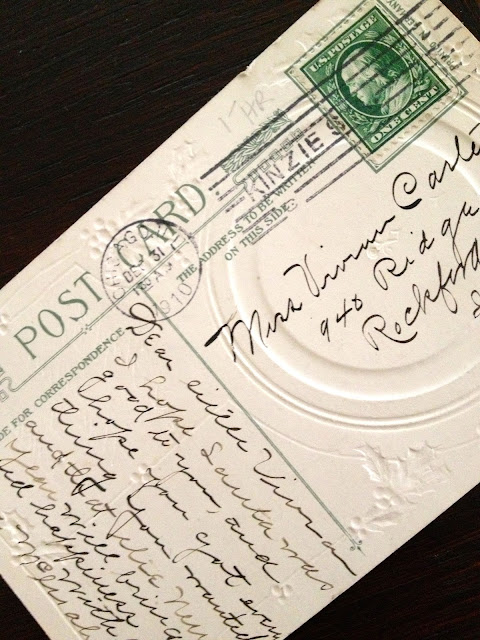 U.S. POSTAGE
ONE CENT
1- HR
KINZIE S
CHICAGO
DEC 31
1910
POST CARD
THE ADDRESS TO BE WRITTEN
ON THIS SIDE
DE FOR CORRESPONDENCE
Miss Vivian Carlet
940 Ridge
Rockford
Dear sister Vivian
I hope Santa was
good to you, and
I hope you got every
thing you wanted
and that the New
Year will bring
and happiness
with